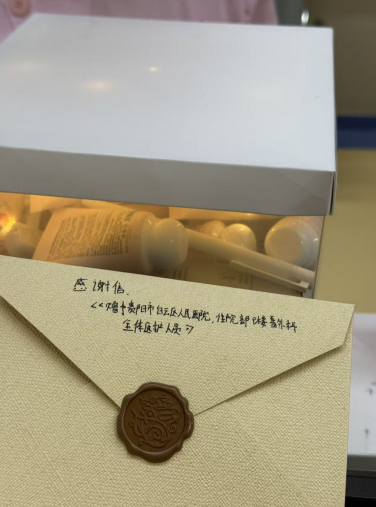 感谢信
<<赠予贵阳市白云区人民医院,住院部12楼普外科
全体医护人员>>